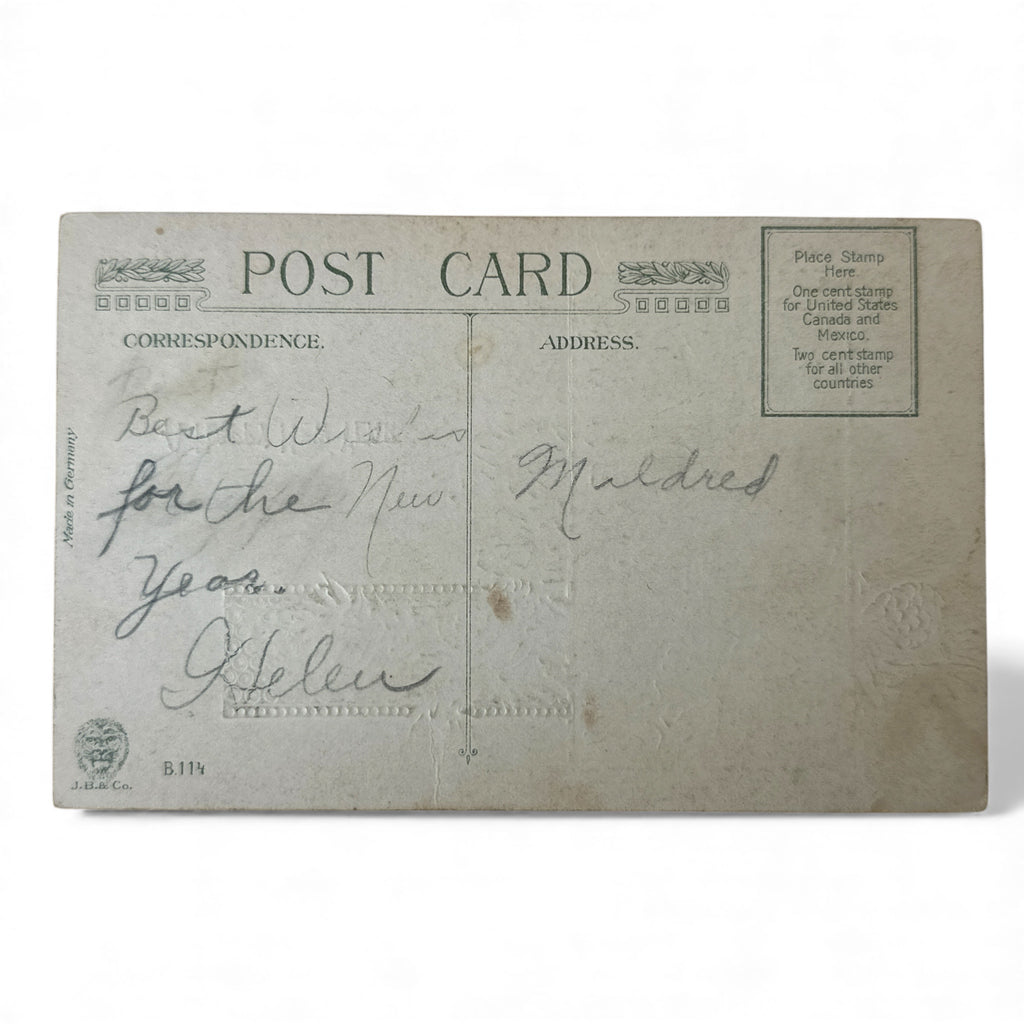 POST CARD
CORRESPONDENCE.
Best
for the New
Year.
Helen
ADDRESS.
Mildred
Place Stamp
Here.
One cent stamp
for United States
Canada and
Mexico.
Two cent stamp
for all other
countries
Made in Germany
J.B.& Co.
B.114